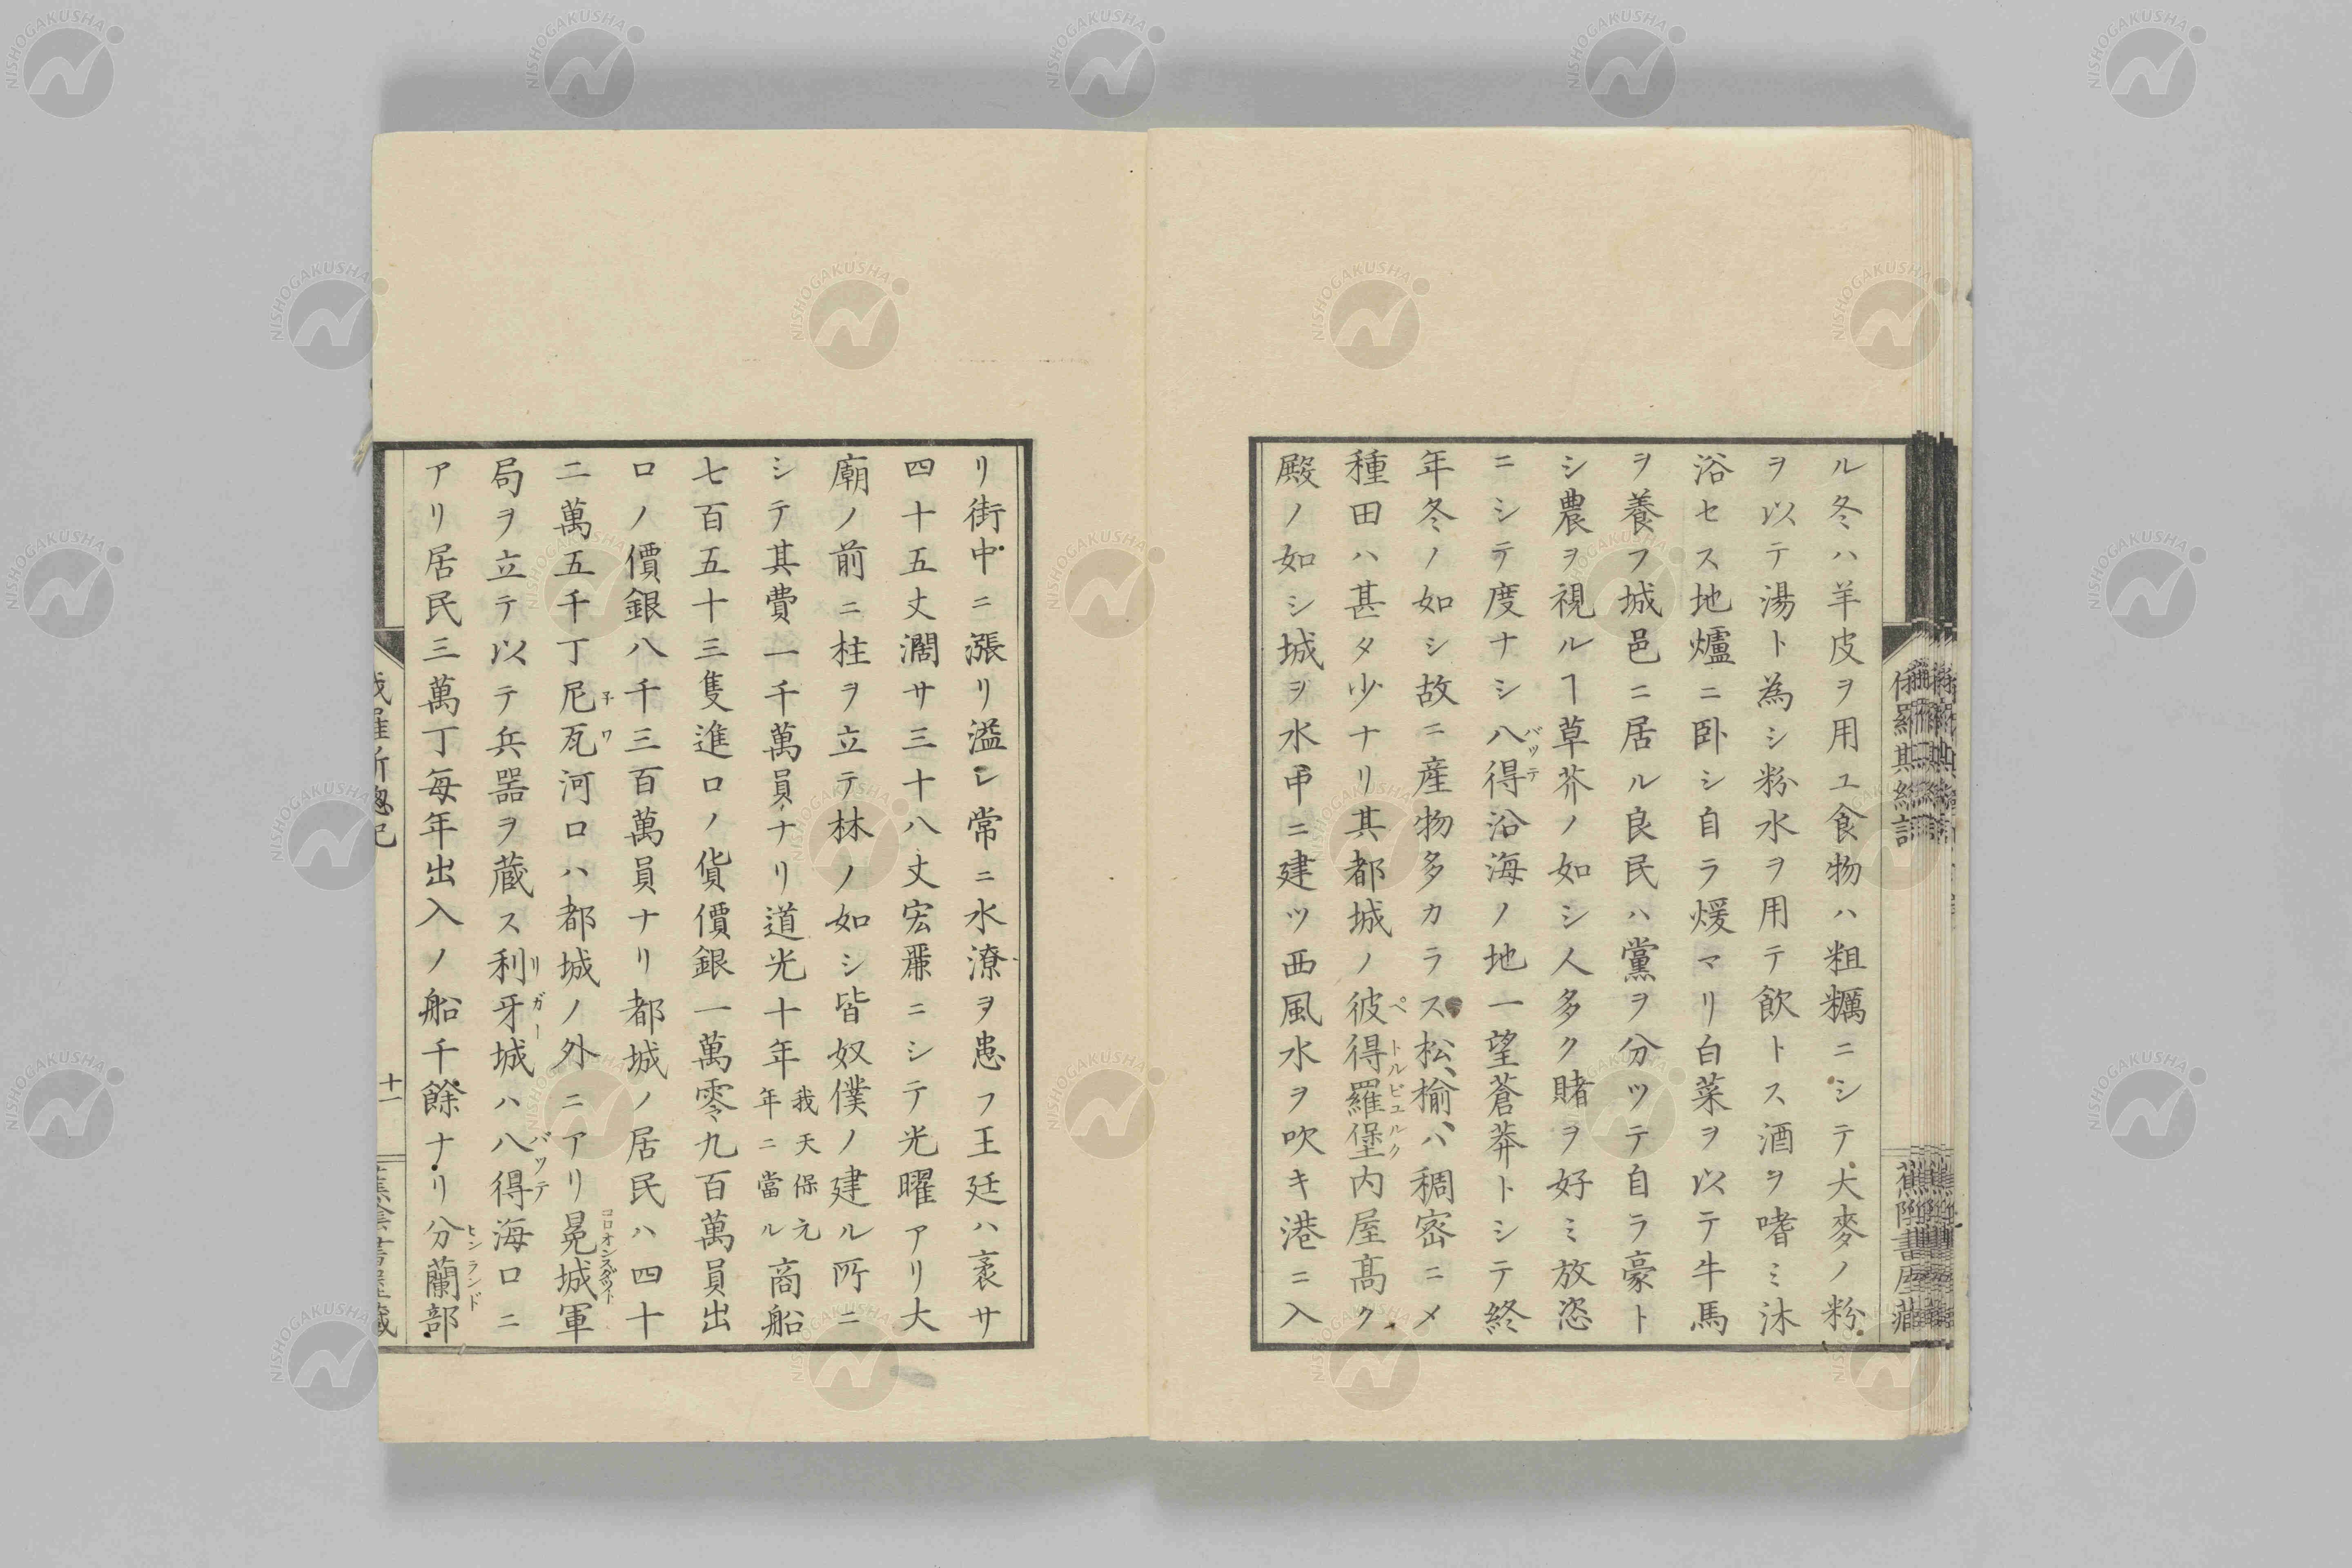 ル冬ハ羊皮ヲ用ユ食物ハ粗糲ニシテ大麥ノ粉
ヲ以テ湯ト為シ粉水ヲ用テ飲トス酒ヲ嗜ミ沐
浴セス地爐ニ卧シ自ラ煖マリ白菜ヲ以テ牛馬
ヲ養フ城邑ニ居ル良民ハ黨ヲ分ツテ自ラ豪ト
シ農ヲ視ルヿ草芥ノ如シ人多ク賭ヲ好ミ放恣
ニシテ度ナシ八得沿海ノ地一望蒼莽トシテ終
バッテ
年冬ノ如シ故ニ産物多カラス松、榆、ハ稠密ニメ
種田ハ甚タ少ナリ其都城ノ彼得羅堡内屋髙ク
ペトルビュルク
殿ノ如シ城ヲ水中ニ建ツ西風水ヲ吹キ港ニ入
リ街中ニ漲リ溢レ常ニ水潦ヲ患フ王廷ハ袤サ
四十五丈濶サ三十八丈宏麗ニシテ光曜アリ大
廟ノ前ニ柱ヲ立テ林ノ如シ皆奴僕ノ建ル所ニ
シテ其費一千萬員ナリ道光十年我天保元年ニ當ル商船
七百五十三隻進口ノ貨價銀一萬零九百萬員出
口ノ價銀八千三百萬員ナリ都城ノ居民ハ四十
二萬五千丁尼瓦河口ハ都城ノ外ニアリ冕城軍
子ワ
コロオンスダット
局ヲ立テ以テ兵器ヲ蔵ス利牙城ハ八得海口ニ
リガー
バッテ
アリ居民三萬丁毎年出入ノ船千餘ナリ分蘭部
ヒンランド
十一
NISHOGAKUSHA